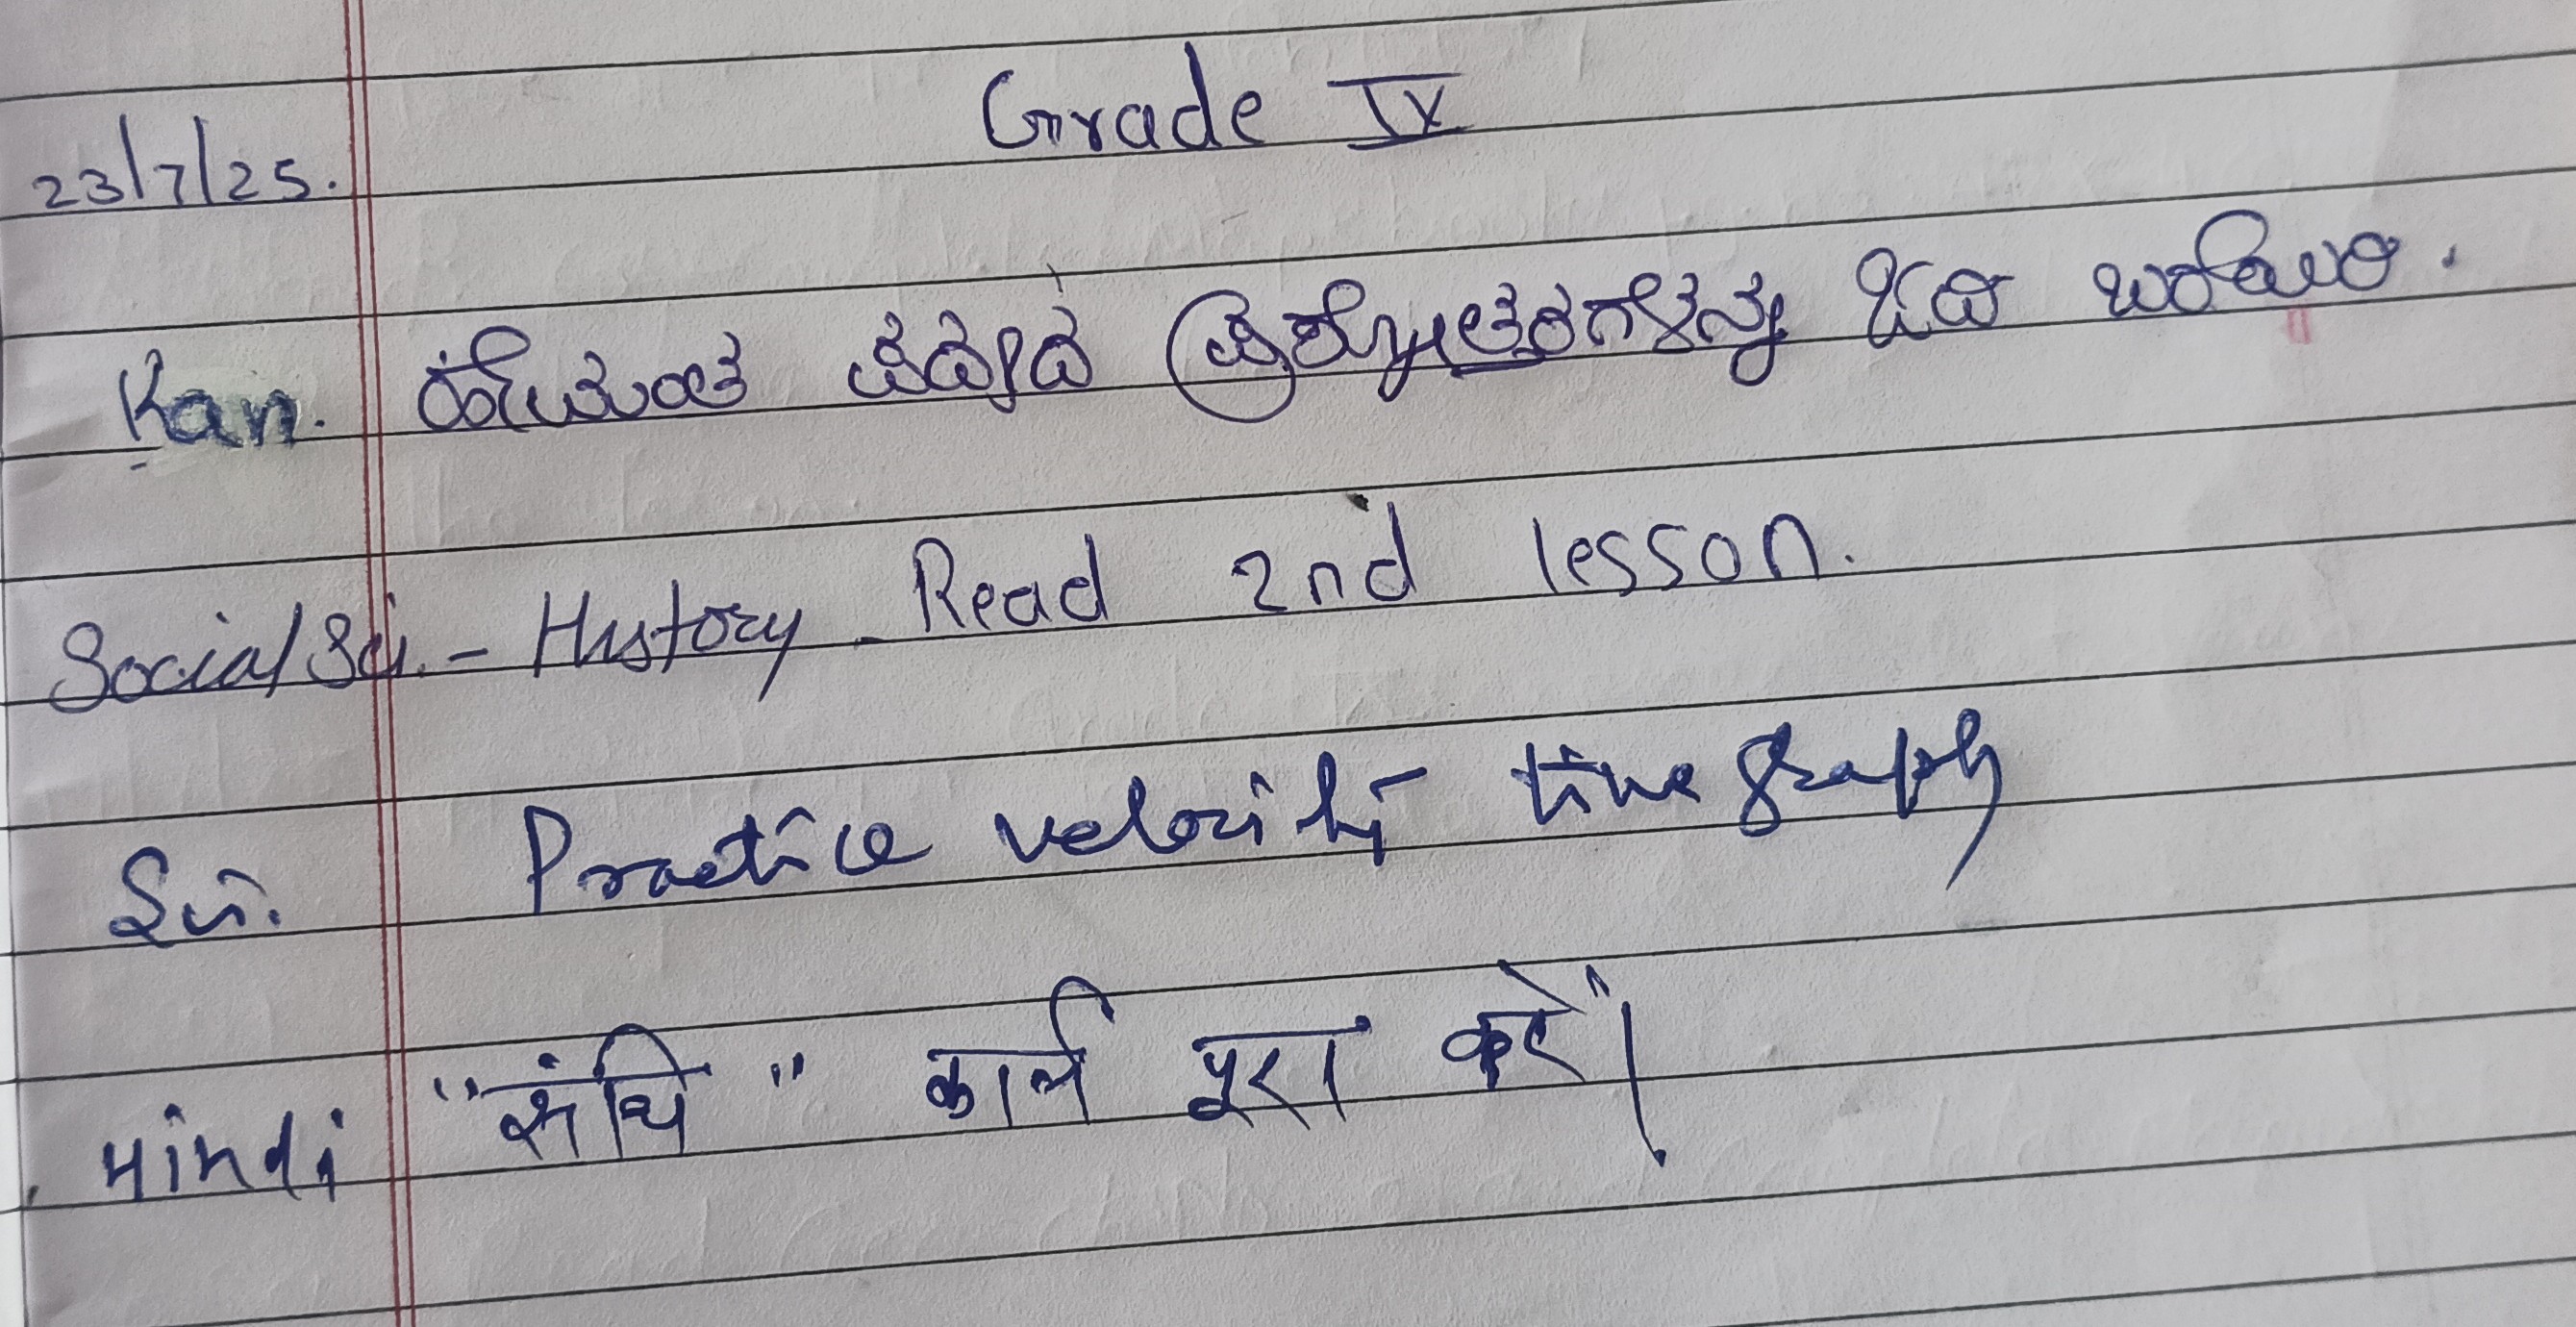 Grade IX
23/7/25.
Kan. ಹೇಮಂತ ಪದ್ಯದ ಪ್ರಶ್ನೋತ್ತರಗಳನ್ನು ಓದಿ ಬರೆಯಿರಿ.
Social Sci. - History - Read 2nd lesson.
Sci. Practice velocity time graph
Hindi "संधि" कार्य पूरा करें।